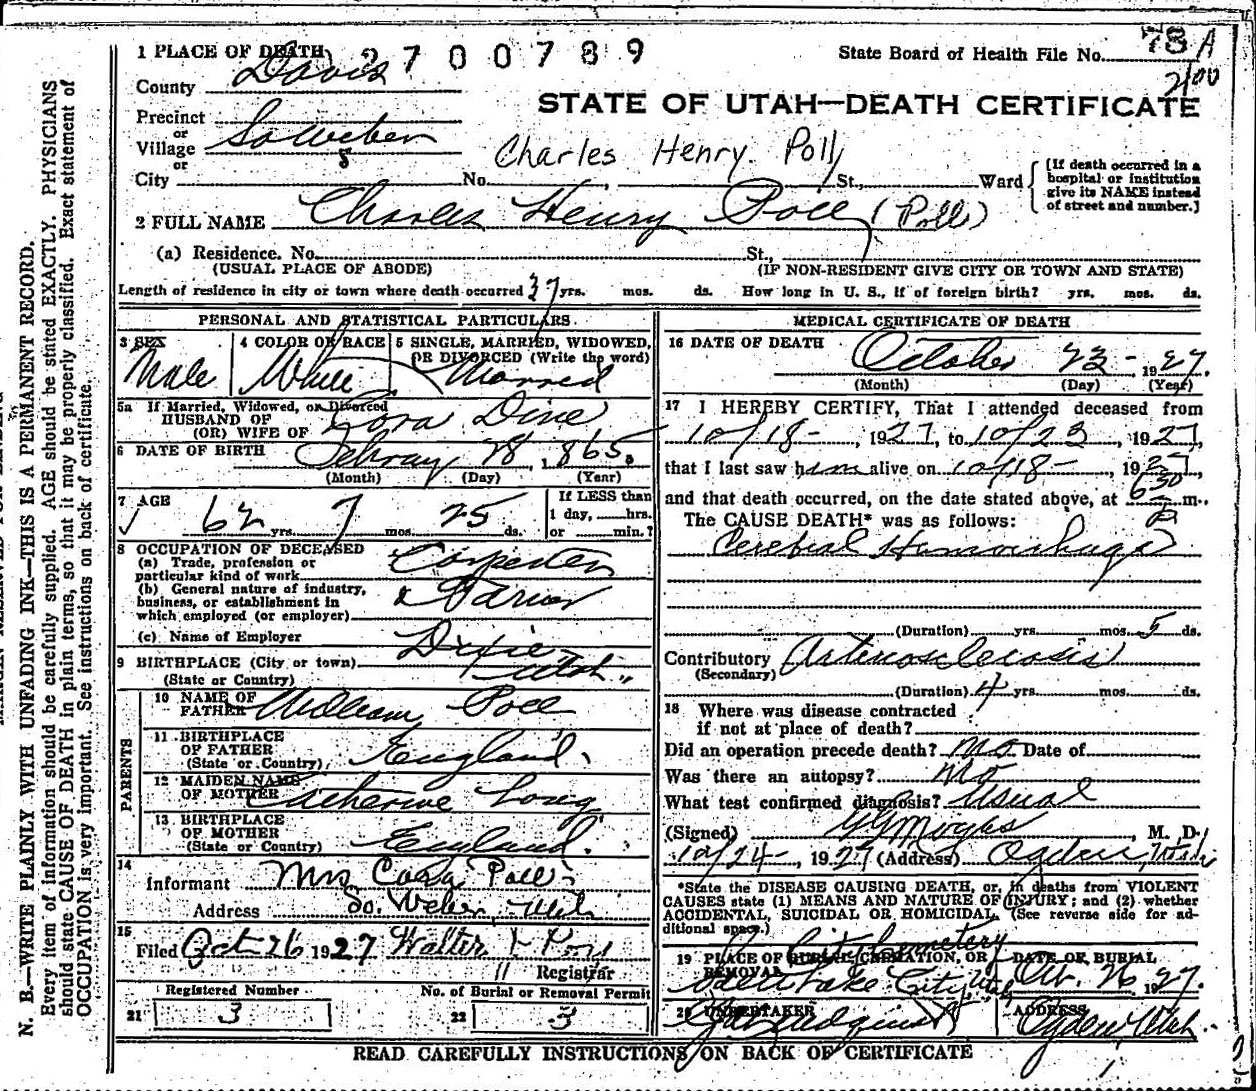 1 PLACE OF DEATH 2700789
State Board of Health File No. 78 A
2100
County Davis
STATE OF UTAH—DEATH CERTIFICATE
Precinct
or
Village So Weber
or
Charles Henry. Poll
City No. , St., Ward
[If death occurred in a
hospital or institution
give its NAME instead
of street and number.]
2 FULL NAME Charles Henry Poll (Poll)
(a) Residence. No. St.,
(USUAL PLACE OF ABODE) (IF NON-RESIDENT GIVE CITY OR TOWN AND STATE)
Length of residence in city or town where death occurred 37 yrs. mos. ds. How long in U. S., if of foreign birth? yrs. mos. ds.
PERSONAL AND STATISTICAL PARTICULARS
3 SEX Male
4 COLOR OR RACE White
5 SINGLE, MARRIED, WIDOWED,
OR DIVORCED (Write the word)
Married
5a If Married, Widowed, or Divorced
HUSBAND OF
(OR) WIFE OF Cora
6 DATE OF BIRTH 28, 1865.
(Month) (Day) (Year)
7 AGE
62 yrs. 7 mos. 25 ds.
If LESS than
1 day, hrs.
or min.?
8 OCCUPATION OF DECEASED
(a) Trade, profession or
particular kind of work Carpenter
(b) General nature of industry,
business, or establishment in
which employed (or employer) & Farmer
(c) Name of Employer
Dixie
9 BIRTHPLACE (City or town)
(State or Country) Utah
PARENTS
10 NAME OF
FATHER William Poll
11 BIRTHPLACE
OF FATHER
(State or Country) England.
12 MAIDEN NAME
OF MOTHER Catherine Long
13 BIRTHPLACE
OF MOTHER
(State or Country) England.
14
Informant Mrs Cora Poll
Address So. Weber, Utah
15
Filed Oct 26 1927 Walter
Registrar
Registered Number
21 3
No. of Burial or Removal Permit
22 3
MEDICAL CERTIFICATE OF DEATH
16 DATE OF DEATH October 23 - 1927.
(Month) (Day) (Year)
17 I HEREBY CERTIFY, That I attended deceased from
10/18-, 1927, to 10/23, 1927,
that I last saw him alive on 10/18-, 1927
and that death occurred, on the date stated above, at 630 m.
The CAUSE DEATH* was as follows:
Cerebral Hemorrhage
(Duration) yrs. mos. 5 ds.
Contributory Arteriosclerosis
(Secondary)
(Duration) 4 yrs. mos. ds.
18 Where was disease contracted
if not at place of death?
Did an operation precede death? No Date of
Was there an autopsy? No
What test confirmed diagnosis? Usual
(Signed) , M. D.
10/24-, 1927 (Address) Ogden, Utah
*State the DISEASE CAUSING DEATH, or, in deaths from VIOLENT
CAUSES state (1) MEANS AND NATURE OF INJURY; and (2) whether
ACCIDENTAL, SUICIDAL OR HOMICIDAL. (See reverse side for ad-
ditional space.)
City Cemetery
19 PLACE OF BURIAL, CREMATION, OR
REMOVAL
Salt Lake City Utah
DATE OF BURIAL
Oct. 26 1927.
20 UNDERTAKER
ADDRESS
Ogden, Utah.
READ CAREFULLY INSTRUCTIONS ON BACK OF CERTIFICATE
N. B.—WRITE PLAINLY WITH UNFADING INK—THIS IS A PERMANENT RECORD.
Every item of information should be carefully supplied. AGE should be stated EXACTLY. PHYSICIANS
should state CAUSE OF DEATH in plain terms, so that it may be properly classified. Exact statement of
OCCUPATION is very important. See instructions on back of certificate.